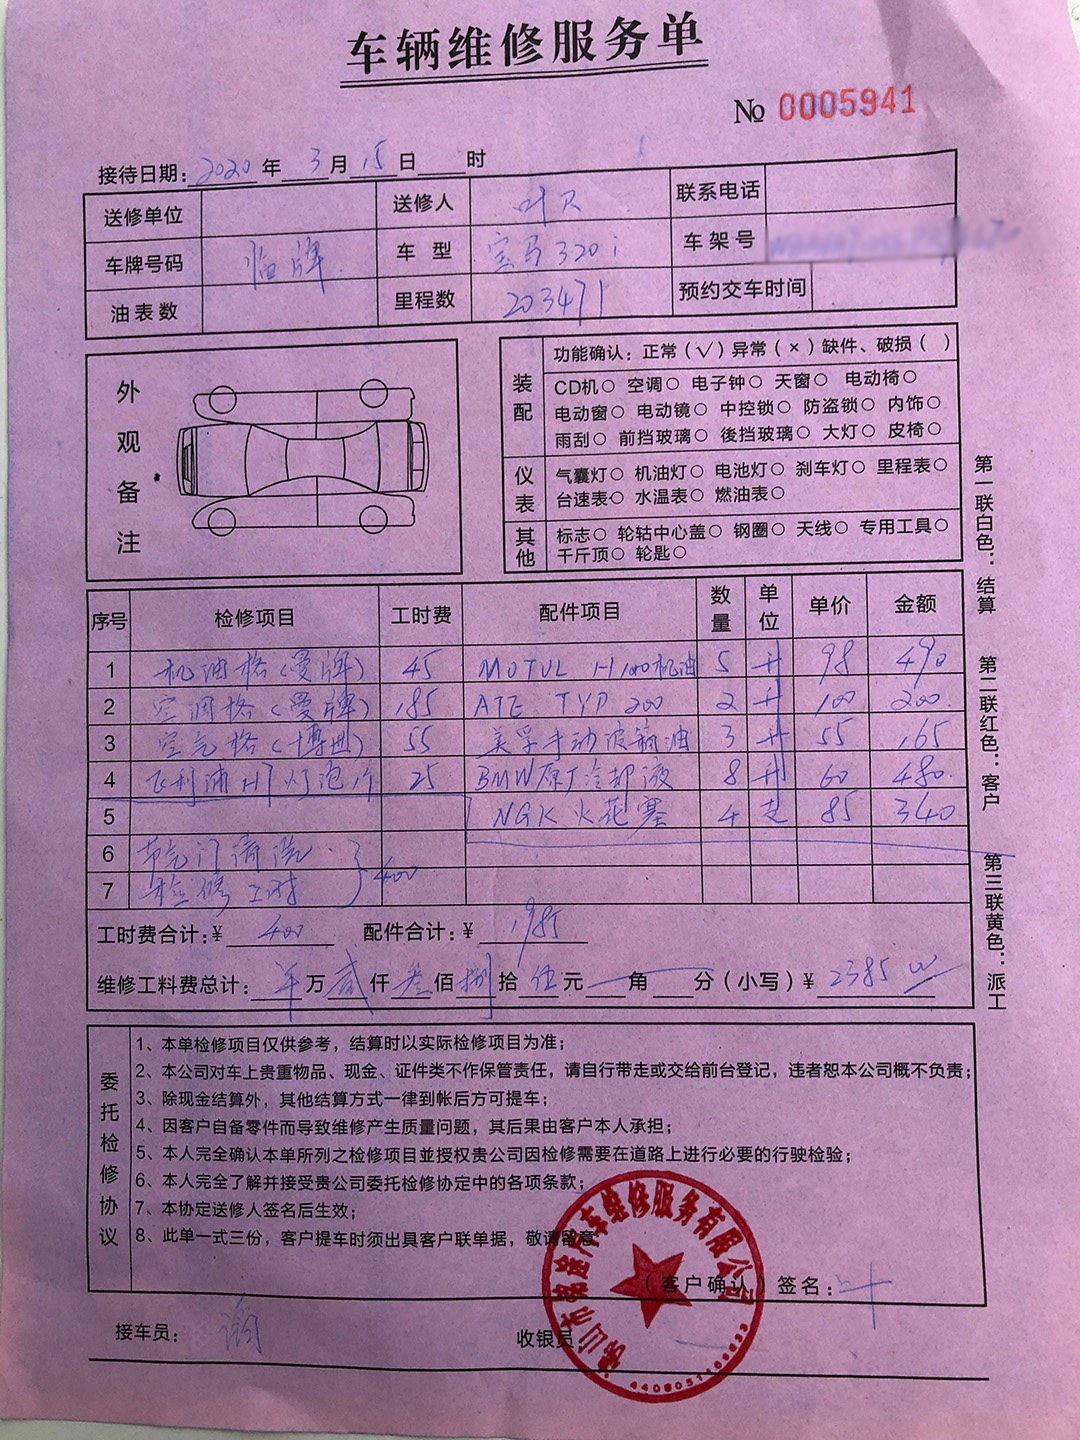 车辆维修服务单
№ 0005941
接待日期: 2020 年 3 月 15 日 时
送修单位 送修人 叶 联系电话
车牌号码 临牌 车型 宝马320i 车架号
油表数 里程数 203471 预约交车时间
外观备注
装配
功能确认: 正常(√)异常(×)缺件、破损( )
CD机○ 空调○ 电子钟○ 天窗○ 电动椅○
电动窗○ 电动镜○ 中控锁○ 防盗锁○ 内饰○
雨刮○ 前挡玻璃○ 後挡玻璃○ 大灯○ 皮椅○
仪表
气囊灯○ 机油灯○ 电池灯○ 刹车灯○ 里程表○
台速表○ 水温表○ 燃油表○
其他
标志○ 轮轱中心盖○ 钢圈○ 天线○ 专用工具○
千斤顶○ 轮匙○
序号 检修项目 工时费 配件项目 数量 单位 单价 金额
1 机油格(曼牌) 45 MOTUL H100机油 5 升 98 490
2 空调格(曼牌) 185 ATE TYP 200 2 升 100 200
3 空气格(博世) 55 美孚手动波箱油 3 升 55 165
4 飞利浦H7灯泡1个 25 BMW原厂冷却液 8 升 60 480
5 NGK 火花塞 4 支 85 340
6 节气门清洗
7 检修工时 400
工时费合计:¥ 400 配件合计:¥ 1985
维修工料费总计: 万 贰 仟 叁 佰 捌 拾 伍 元 角 分(小写)¥ 2385.00
第一联白色:结算
第二联红色:客户
第三联黄色:派工
委托检修协议
1、本单检修项目仅供参考，结算时以实际检修项目为准;
2、本公司对车上贵重物品、现金、证件类不作保管责任，请自行带走或交给前台登记，违者恕本公司概不负责;
3、除现金结算外，其他结算方式一律到帐后方可提车;
4、因客户自备零件而导致维修产生质量问题，其后果由客户本人承担;
5、本人完全确认本单所列之检修项目並授权贵公司因检修需要在道路上进行必要的行驶检验;
6、本人完全了解并接受贵公司委托检修协定中的各项条款;
7、本协定送修人签名后生效;
8、此单一式三份，客户提车时须出具客户联单据，敬请留意
(客户确认)签名: 叶
接车员: 收银员:
汽车维修服务有限公司